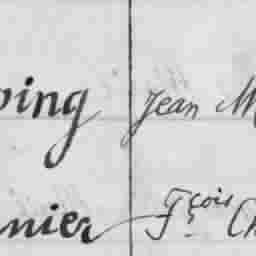 ping Jean M
nier F.çois Ch